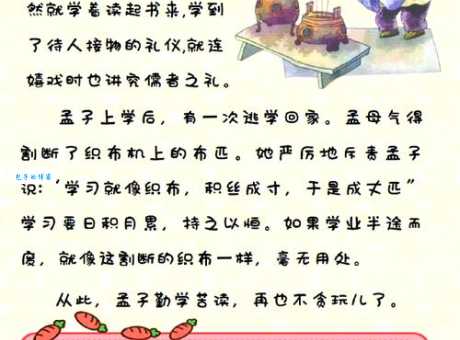 然就学着读起书来,学到
了待人接物的礼仪,就连
嬉戏时也讲究儒者之礼。
孟子上学后，有一次逃学回家。孟母气得
割断了织布机上的布匹。她严厉地斥责孟子
说:“学习就像织布，积丝成寸，于是成丈匹”
学习要日积月累，持之以恒。如果学业半途而
废，就像这割断的织布一样，毫无用处。
从此，孟子勤学苦读，再也不贪玩儿了。